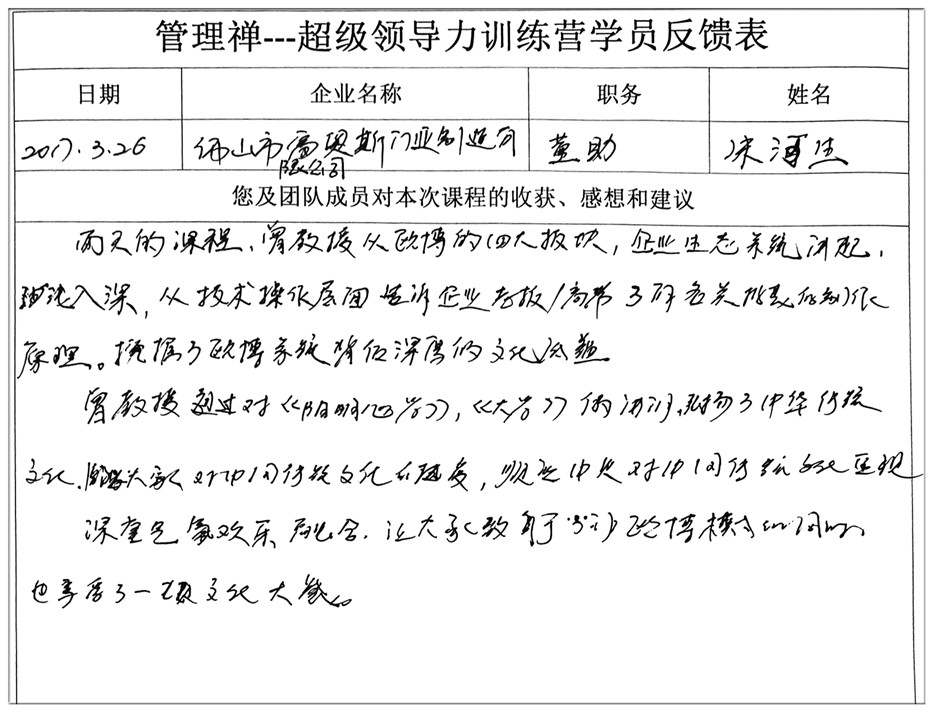 管理禅---超级领导力训练营学员反馈表
日期 企业名称 职务 姓名
2017.3.26 佛山市雷奥斯门业制造有 董助
限公司
您及团队成员对本次课程的收获、感想和建议
两天的课程、曾教授从欧博的四大板块，企业生态系统
入深，从技术操作层面告诉企业老板/高管了解各类
原理。挖掘了欧博系统背后深厚的文化底蕴
曾教授通过对《阳明心学》，《大学》的讲训，弘扬了中华传统
文化、大家对中国传统文化，中央对中国传统文化重视
课堂气氛欢乐融合、让大家教学于学习欧博模式的同时
也享受了一顿文化大餐。